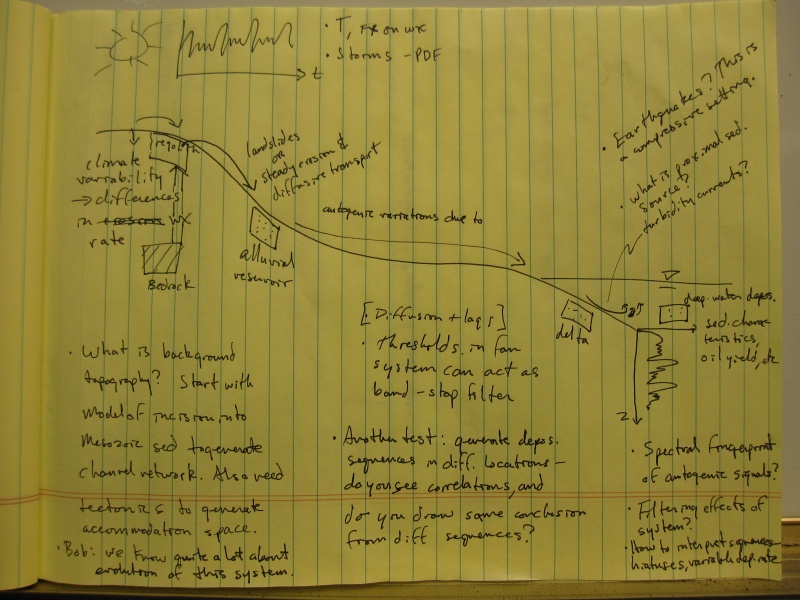 • T, fx on wx
• Storms - PDF
t
• Earthquakes? This is
a compressive setting.
regolith
climate
variability
→ differences
in wx
rate
Bedrock
landslides
or
steady erosion &
diffusive transport
alluvial
reservoir
autogenic variations due to
• What is proximal sed.
source?
turbidity currents?
delta
deep-water depos.
sed. charac
teristics,
oil yield, etc
z
[Diffusion + lags]
• thresholds in fan
system can act as
band-stop filter
• What is background
topography? Start with
model of incision into
Mesozoic sed to generate
channel network. Also need
tectonics to generate
accommodation space.
• Bob: we know quite a lot about
evolution of this system.
• Another test: generate depos.
sequences in diff. locations –
do you see correlations, and
do you draw same conclusion
from diff sequences?
• Spectral fingerprint
of autogenic signals?
• Filtering effects of
system?
• How to interpret sequences
hiatuses, variable dep. rate